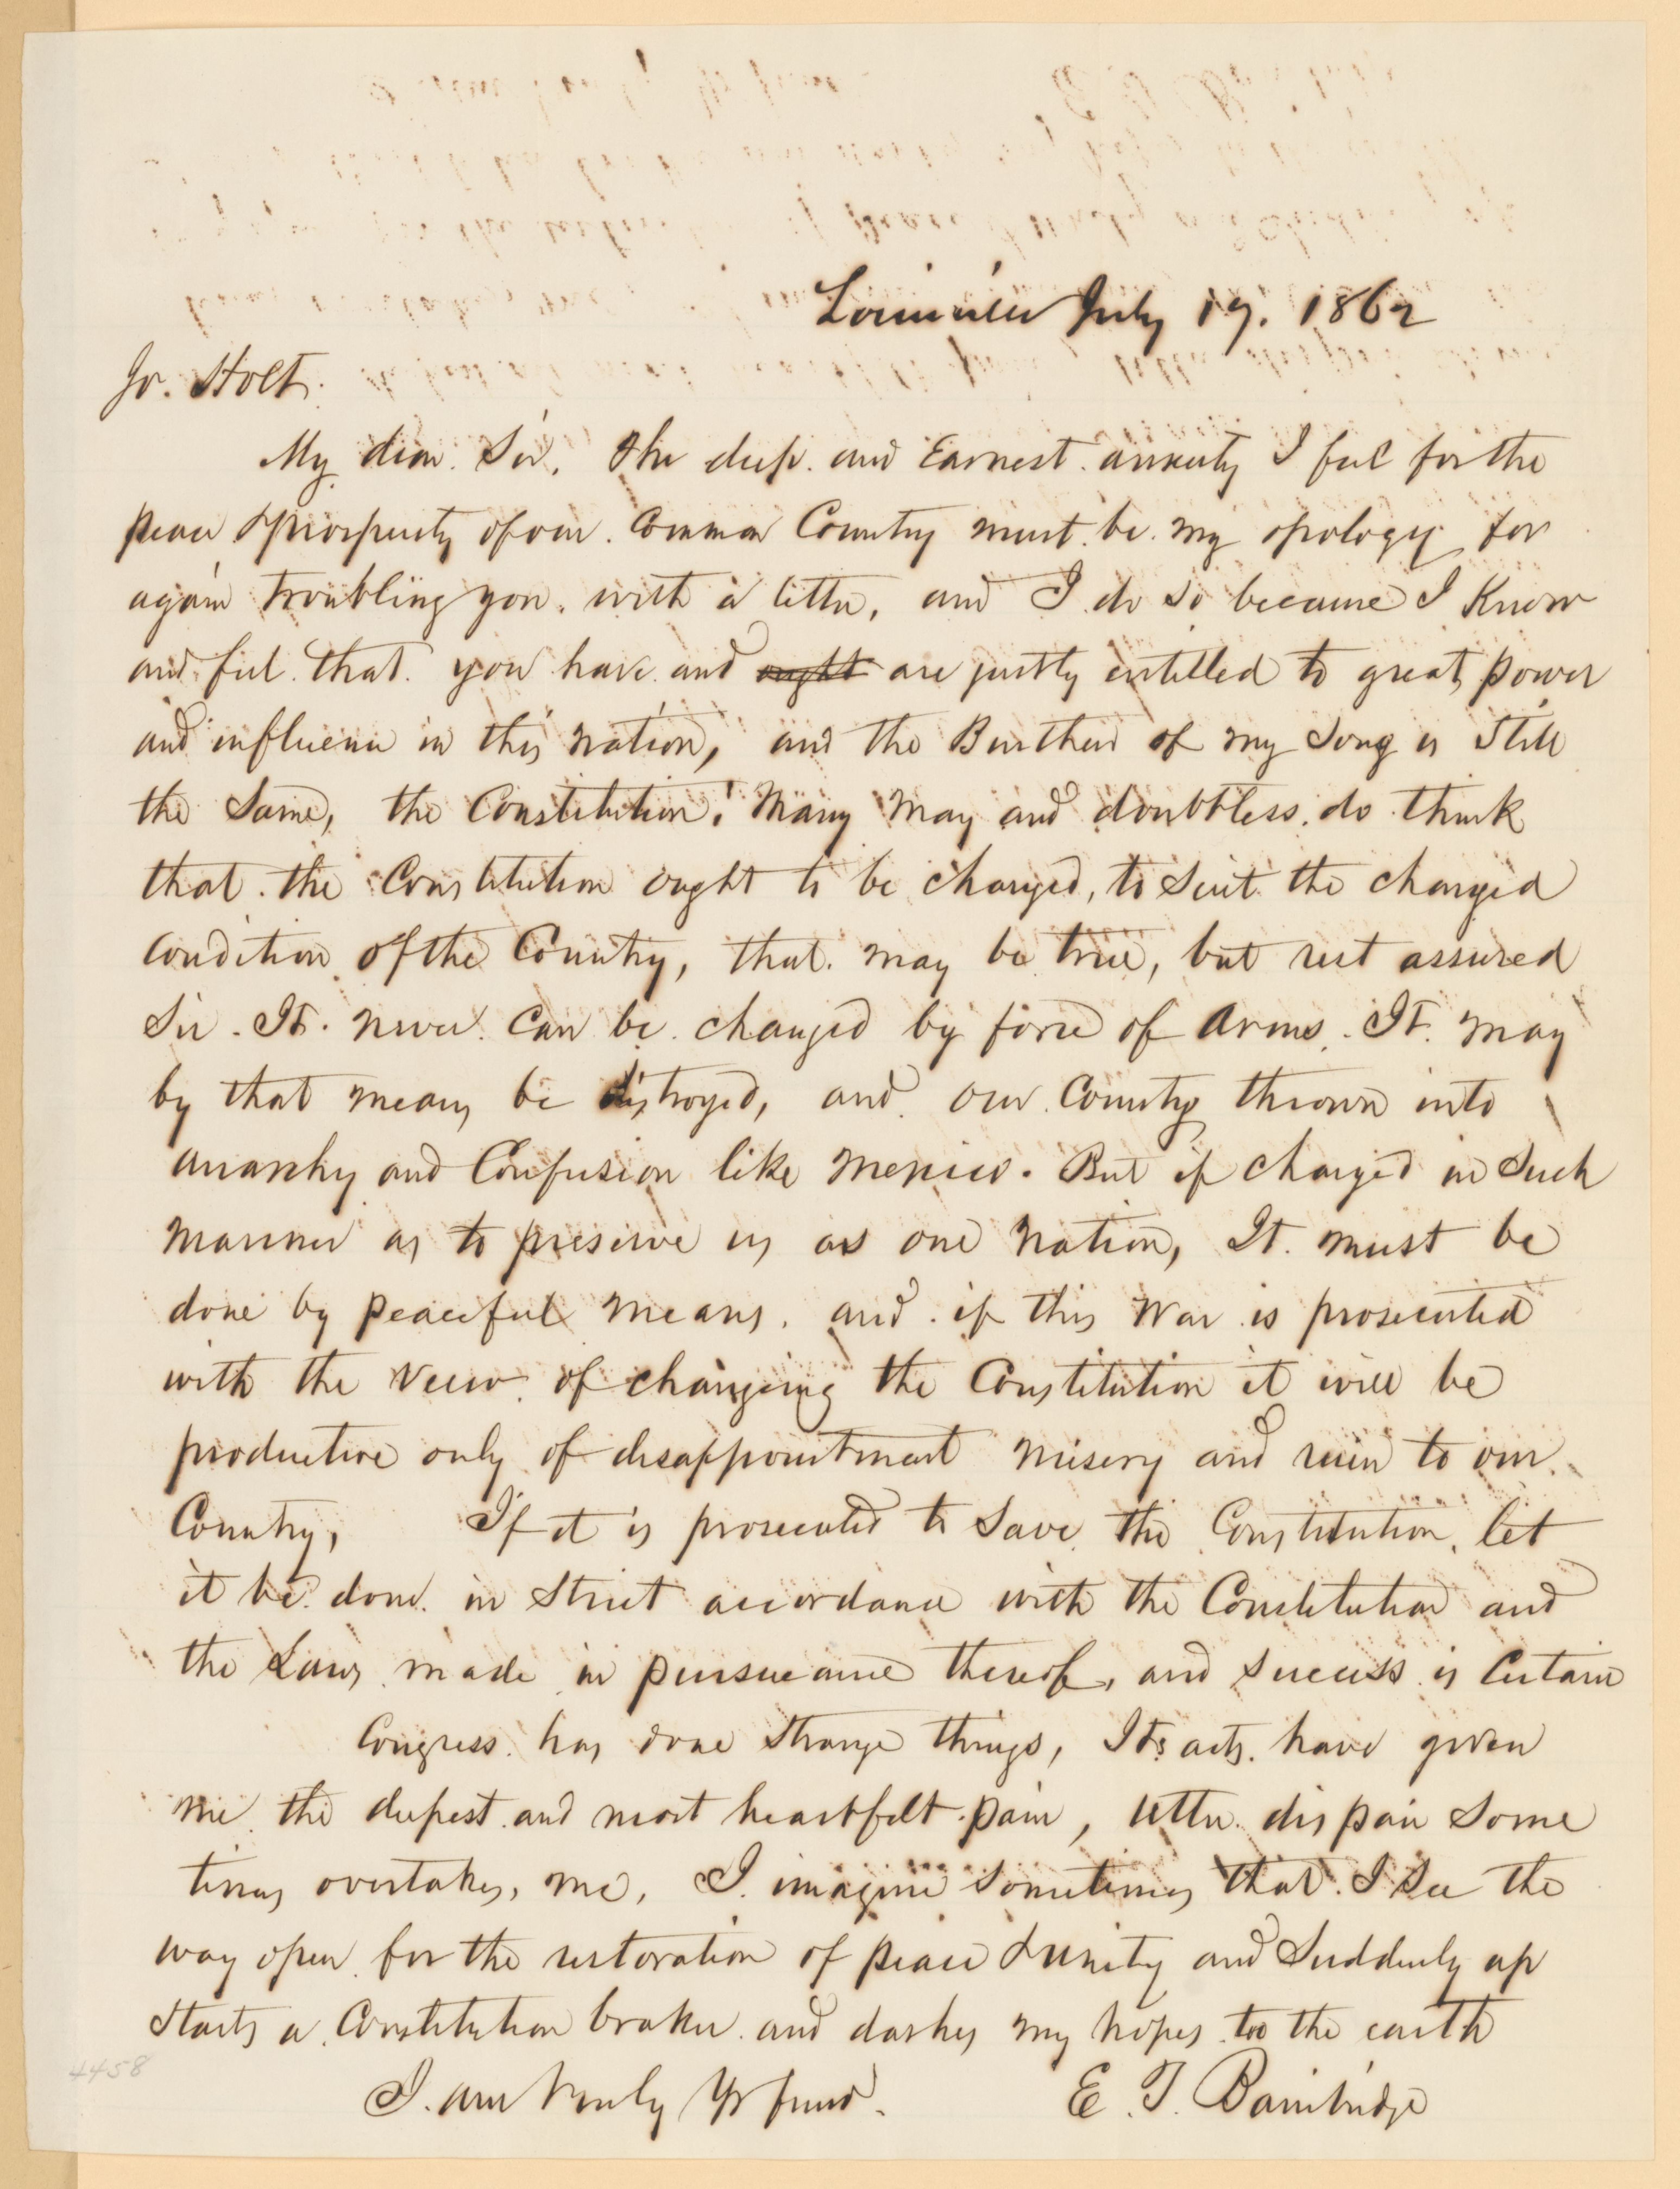 Louisville July 19. 1862
Jo. Holt.
My dear Sir, The deep and Earnest anxiety I feel for the
peace & prosperity of our Common Country must be my apology for
again troubling you with a letter, and I do so because I Know
and feel that you have and ought are justly entitled to great power
and influence in this nation, and the Burthen of my Song is Still
the Same, the Constitution. Many may and doubtless do think
that the Constitution ought to be changed, to Suit the changed
Condition of the Country, that may be true, but rest assured
Sir. It never Can be changed by force of Arms. It may
by that means be distroyed, and our Country thrown into
anarchy and Confusion like Mexico. But if changed in Such
manner as to preserve us as one Nation, It must be
done by peaceful means. and if this War is prosecuted
with the veiw of changeing the Constitution it will be
productive only of disappointment misery and ruin to our
Country, If it is prosecuted to Save the Constitution, let
it be done in Strict accordance with the Constitution and
the Laws made in pursueance thereof, and success is Certain
Congress has done Strange things, Its acts have given
me the deepest and most heartfelt pain, utter dispair Some
times overtakes me, I imagine Sometimes that I See the
way open for the restoration of peace & unity and Suddenly up
Starts a Constitution broker and dashes my hopes too the earth
I. am truly Yr friend. E. T. Bainbridge
4458